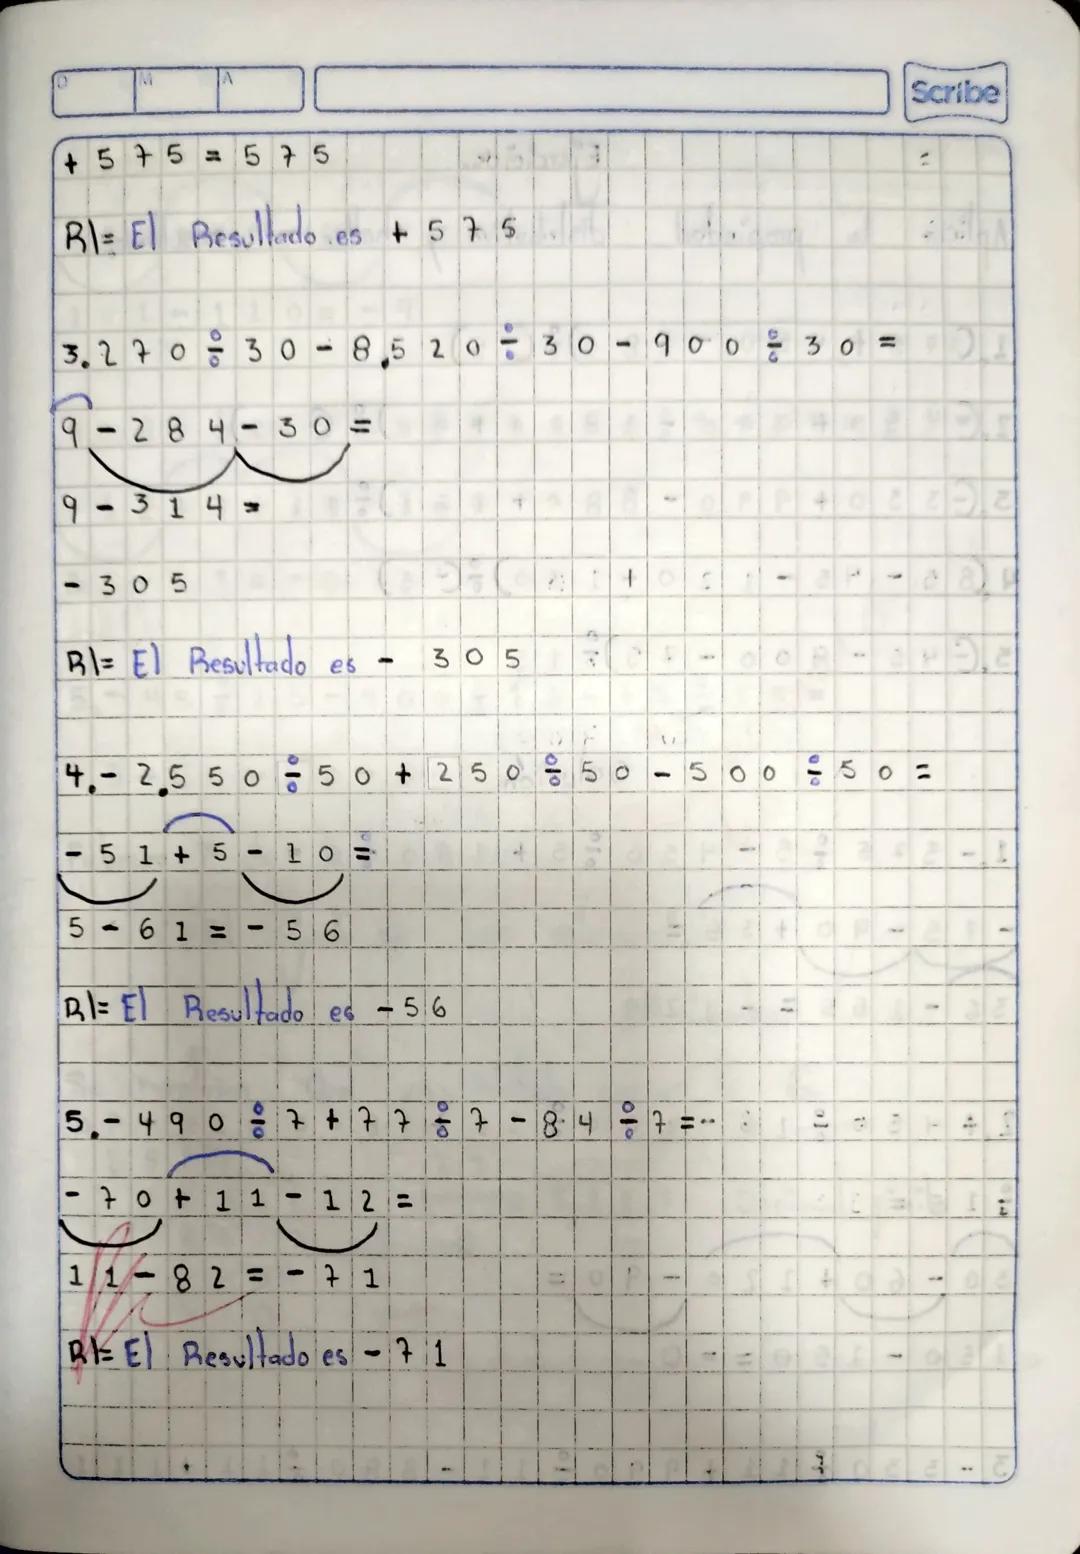 D M A
Scribe
+ 575 = 575
R|= El Resultado es + 575
3. 270 ÷ 30 - 8,520 ÷ 30 - 900 ÷ 30 =
9 - 284 - 30 =
9 - 314 =
- 305
R|= El Resultado es - 305
4. - 2,550 ÷ 50 + 250 ÷ 50 - 500 ÷ 50 =
- 51 + 5 - 10 =
5 - 61 = - 56
R|= El Resultado es - 56
5. - 490 ÷ 7 + 77 ÷ 7 - 84 ÷ 7 =
- 70 + 11 - 12 =
11 - 82 = - 71
R|= El Resultado es - 71